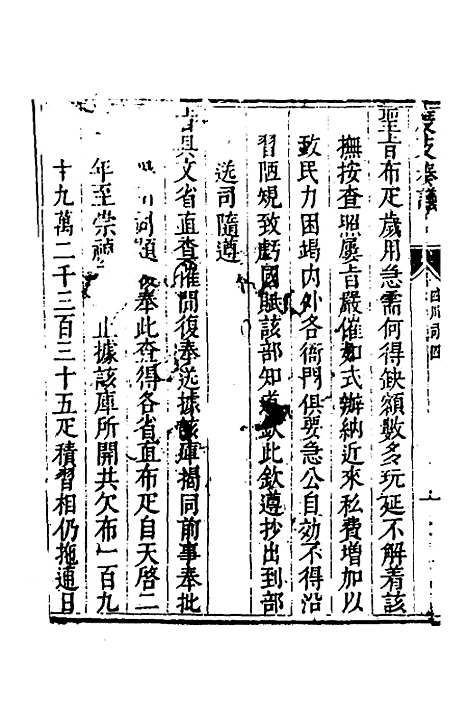 聖旨布疋歲用急需何得缺額數多玩延不解着該
撫按查照屢旨嚴催如式辦納近來私費增加以
致民力困竭内外各衙門俱要急公自効不得沿
習陋規致虧國賦該部知道欽此欽遵抄出到部
送司隨遵
旨具文省直查催間復奉送據該庫揭同前事奉批
奉此查得各省直布疋自天啓二
年至崇禎 止據該庫所開共欠布一百九
十九萬二千三百三十五疋積習相仍拖逋日